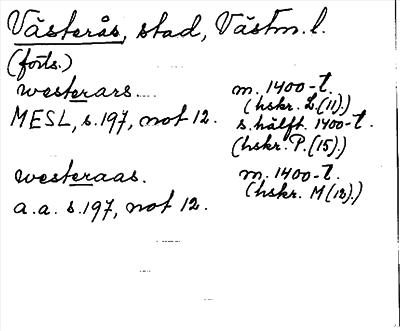 Västerås, stad, Västm. l.
(forts.)
westerars.... m. 1400-t.
(hskr. L.(11).)
MESL, s. 197, not 12. s. hälft. 1400-t.
(hskr. P.(15).)
westeraas. m. 1400-t.
(hskr. M(12).)
a.a. s. 197, not 12.